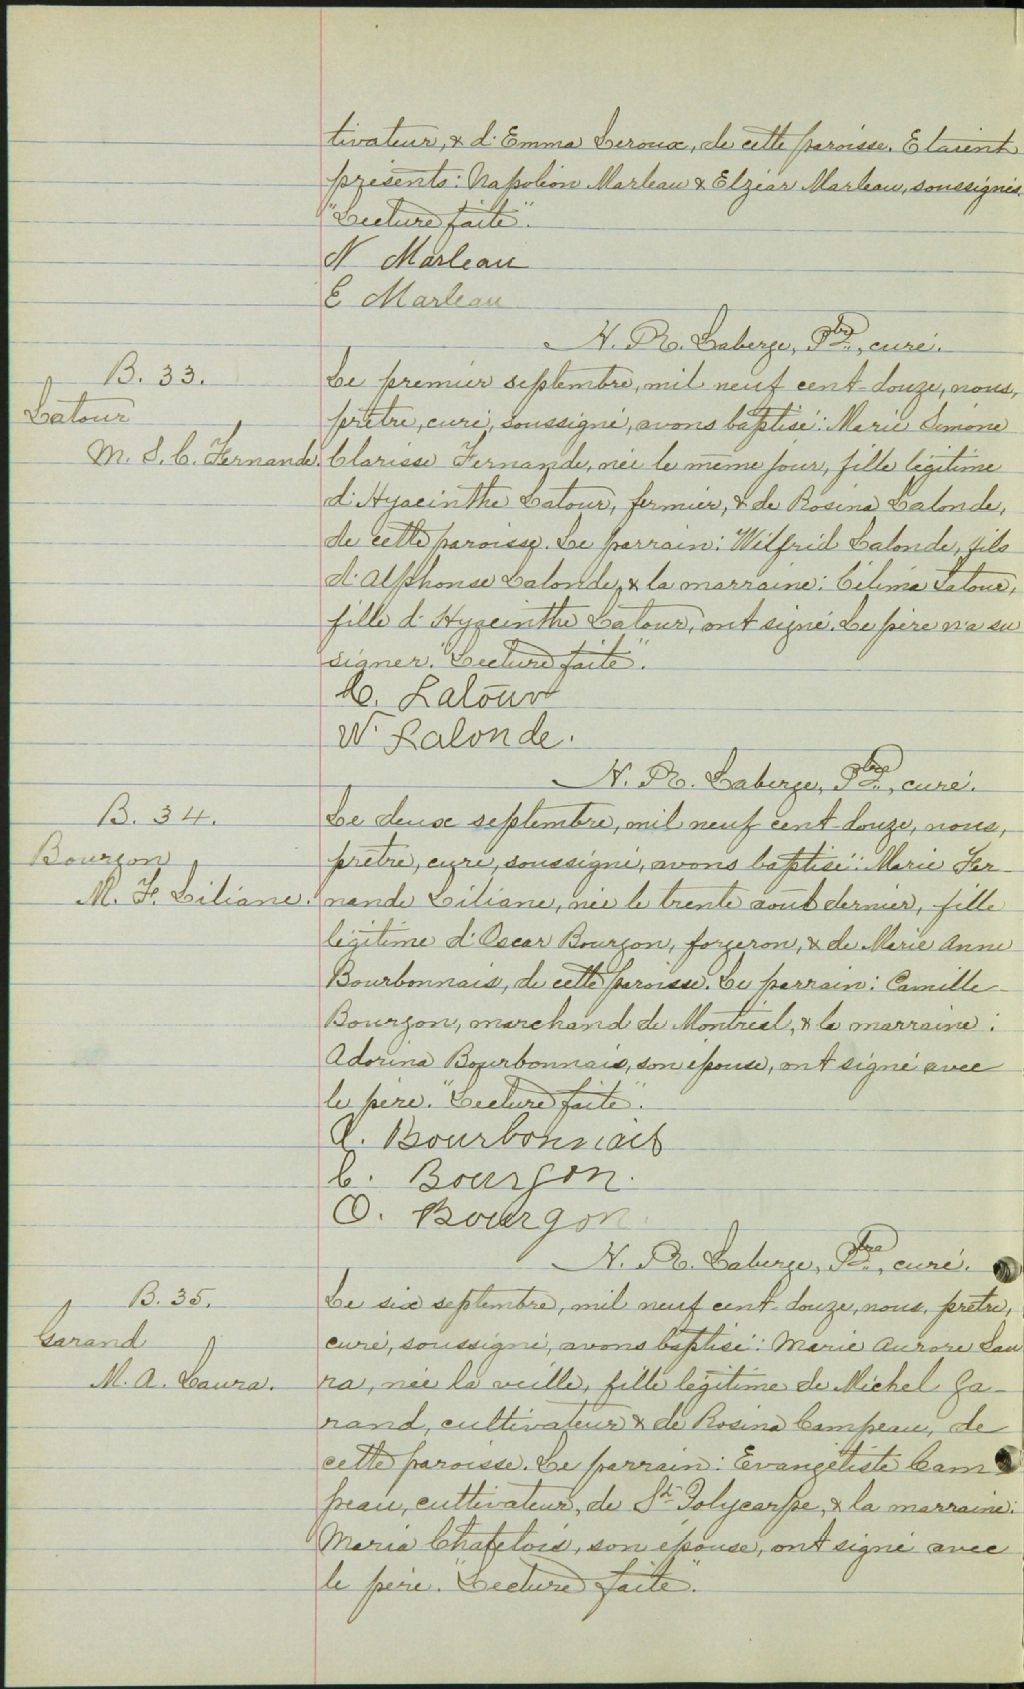 tivateur, & d'Emma Leroux, de cette paroisse. Etaient
présents: Napoléon Marleau & Elzéar Marleau, soussignés.
"Lecture faite".
N Marleau
E Marleau
N. Laberge, Ptre, curé.
B. 33.
Latour
M. S. C. Fernande.
Le premier septembre, mil neuf cent-douze, nous,
prêtre, curé, soussigné, avons baptisé: Marie Simone
Clarisse Fernande, née le même jour, fille légitime
d'Hyacinthe Latour, fermier, & de Rosina Lalonde,
de cette paroisse. Le parrain: Wilfrid Lalonde, fils
d'Alphonse Lalonde, & la marraine: Célima Latour,
fille d'Hyacinthe Latour, ont signé. Le père n'a su
signer. "Lecture faite".
C. Latour
W. Lalonde.
N. Laberge, Ptre, curé.
B. 34.
Bourgon
M. F. Liliane.
Le deux septembre, mil neuf cent-douze, nous,
prêtre, curé, soussigné, avons baptisé: Marie Fer-
nande Liliane, née le trente août dernier, fille
légitime d'Oscar Bourgon, forgeron, & de Marie Anne
Bourbonnais, de cette paroisse. Le parrain: Camille
Bourgon, marchand de Montréal, & la marraine:
Adorina Bourbonnais, son épouse, ont signé avec
le père. "Lecture faite".
A. Bourbonnais
C. Bourgon.
O. Bourgon.
N. Laberge, Ptre, curé.
B. 35.
Garand
M. A. Laura.
Le six septembre, mil neuf cent-douze, nous, prêtre,
curé, soussigné, avons baptisé: Marie Aurore Lau
ra, née la veille, fille légitime de Michel Ga-
rand, cultivateur & de Rosina Campeau, de
cette paroisse. Le parrain: Evangéliste Cam
peau, cultivateur, de St Polycarpe, & la marraine:
Maria Chatelois, son épouse, ont signé avec
le père. "Lecture faite".